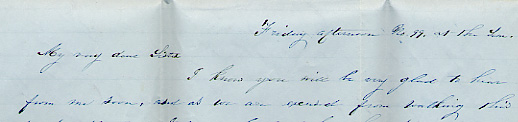 Friday afternoon at the
My very dear Sister
I know you will be very glad to hear
from me soon, and as we are excused from walking this